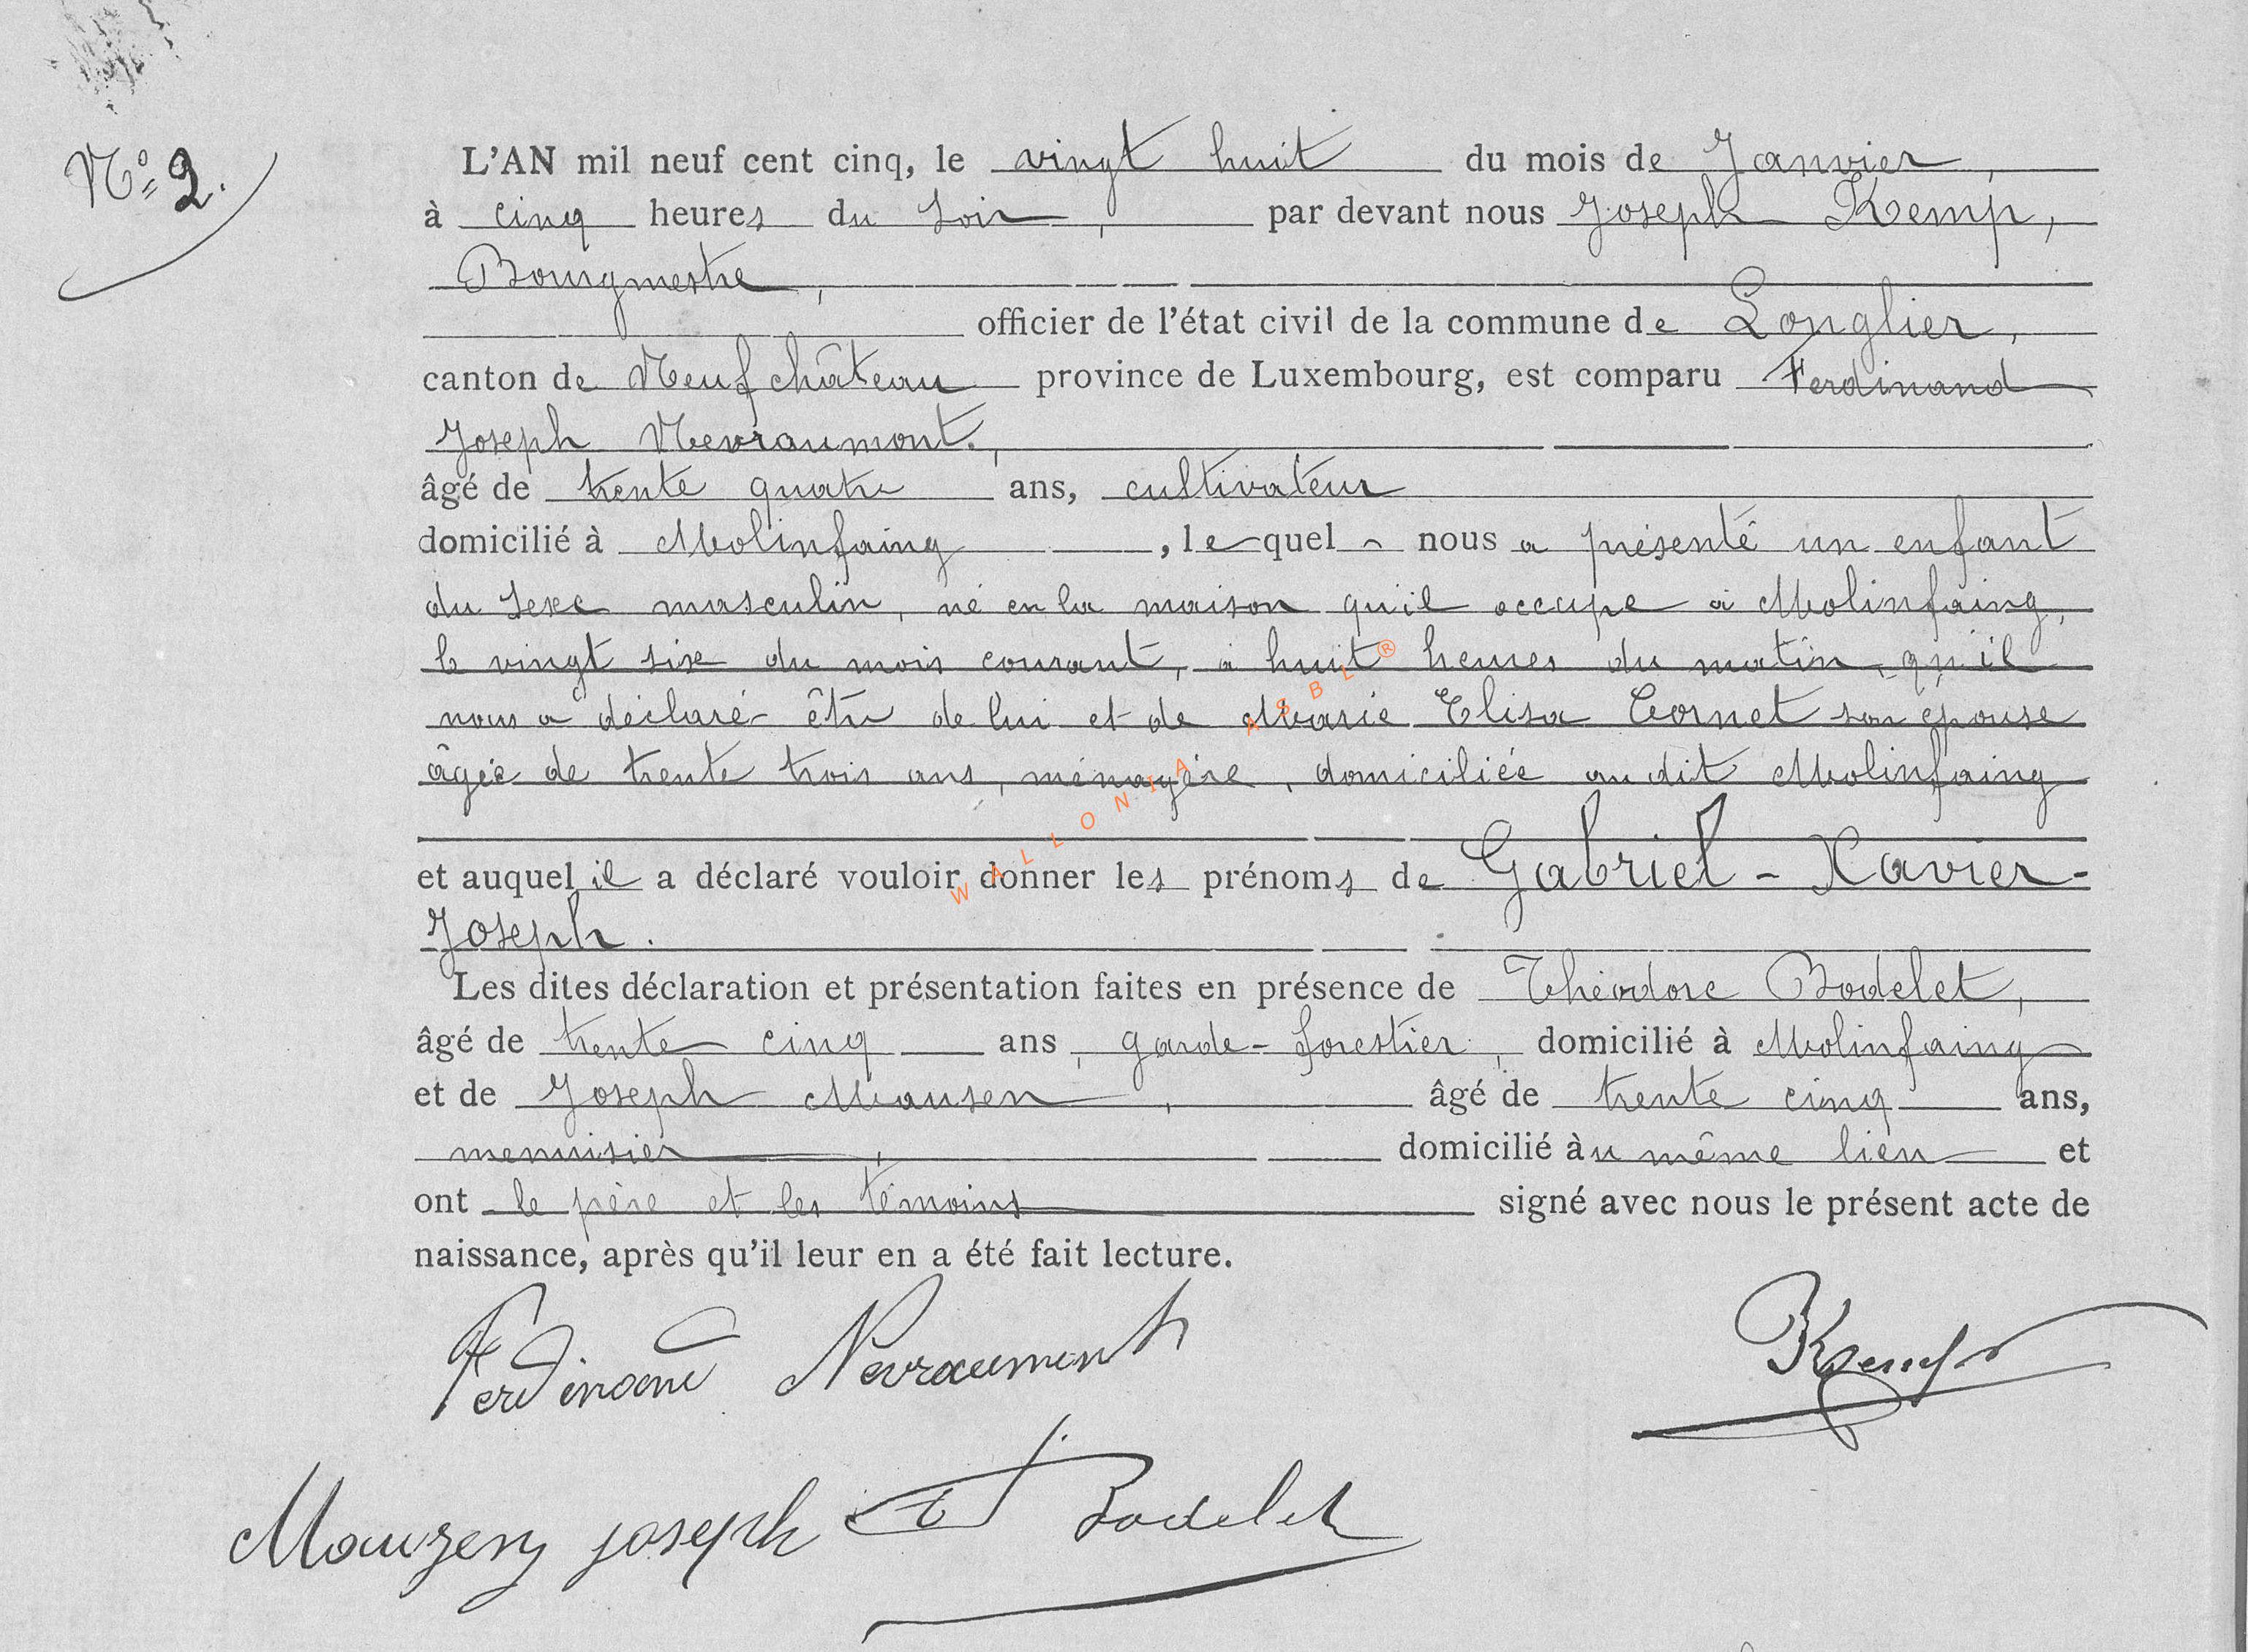 N° 2.
L'AN mil neuf cent cinq, le vingt huit du mois de Janvier,
à cinq heures du soir, par devant nous Joseph Kemp,
Bourgmestre,
officier de l'état civil de la commune de Longlier,
canton de Neufchâteau province de Luxembourg, est comparu Ferdinand
Joseph Nevraumont.,
âgé de trente quatre ans, cultivateur
domicilié à Molinfaing, lequel nous a présenté un enfant
du sexe masculin, né en la maison qu'il occupe à Molinfaing,
le vingt six du mois courant, à huit heures du matin, qu'il
nous a déclaré être de lui et de Marie Elisa Cornet son épouse
âgée de trente trois ans, ménagère, domiciliée au dit Molinfaing
et auquel il a déclaré vouloir donner les prénoms de Gabriel - Xavier -
Joseph.
Les dites déclaration et présentation faites en présence de Théodore Bodelet,
âgé de trente cinq ans, garde-forestier, domicilié à Molinfaing
et de Joseph Mausen, âgé de trente cinq ans,
menuisier, domicilié àu même lieu et
ont le père et les témoins signé avec nous le présent acte de
naissance, après qu'il leur en a été fait lecture.
Ferdinand Nevraumont Kemp
Mauzen joseph T Bodelet
WALLONIA ASBL®